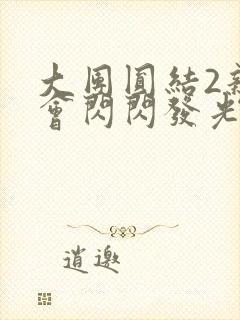 大團圓結2新
會閃閃發光
逍遨